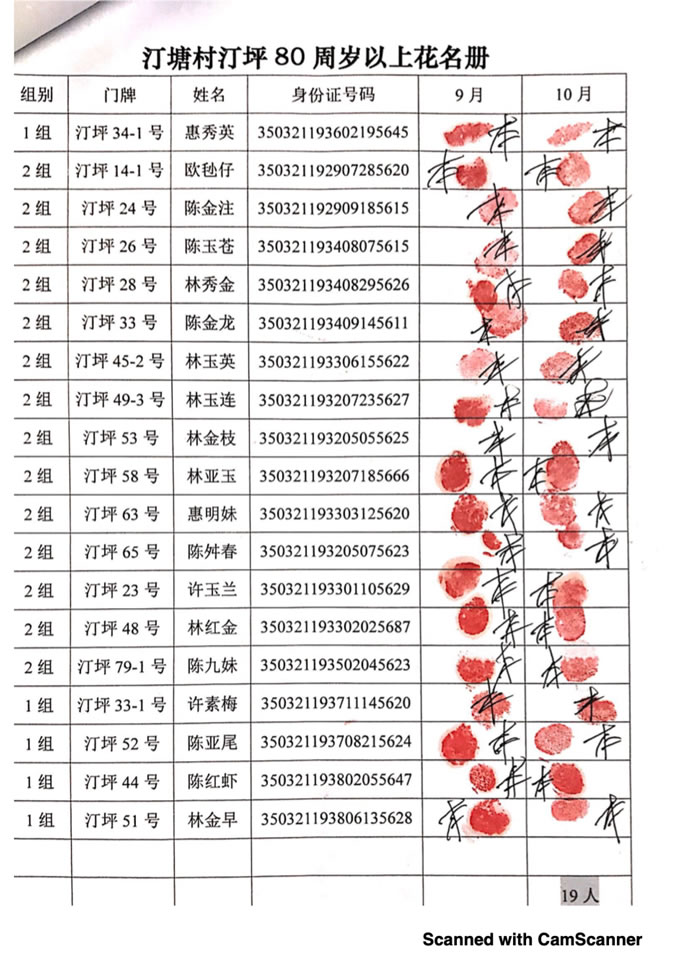 汀塘村汀坪80周岁以上花名册
组别 门牌 姓名 身份证号码 9月 10月
1组 汀坪34-1号 惠秀英 350321193602195645
2组 汀坪14-1号 欧毯仔 350321192907285620
2组 汀坪24号 陈金注 350321192909185615
2组 汀坪26号 陈玉苍 350321193408075615
2组 汀坪28号 林秀金 350321193408295626
2组 汀坪33号 陈金龙 350321193409145611
2组 汀坪45-2号 林玉英 350321193306155622
2组 汀坪49-3号 林玉连 350321193207235627
2组 汀坪53号 林金枝 350321193205055625
2组 汀坪58号 林亚玉 350321193207185666
2组 汀坪63号 惠明妹 350321193303125620
2组 汀坪65号 陈舛春 350321193205075623
2组 汀坪23号 许玉兰 350321193301105629
2组 汀坪48号 林红金 350321193302025687
2组 汀坪79-1号 陈九妹 350321193502045623
1组 汀坪33-1号 许素梅 350321193711145620
1组 汀坪52号 陈亚尾 350321193708215624
1组 汀坪44号 陈红虾 350321193802055647
1组 汀坪51号 林金早 350321193806135628
19人
Scanned with CamScanner